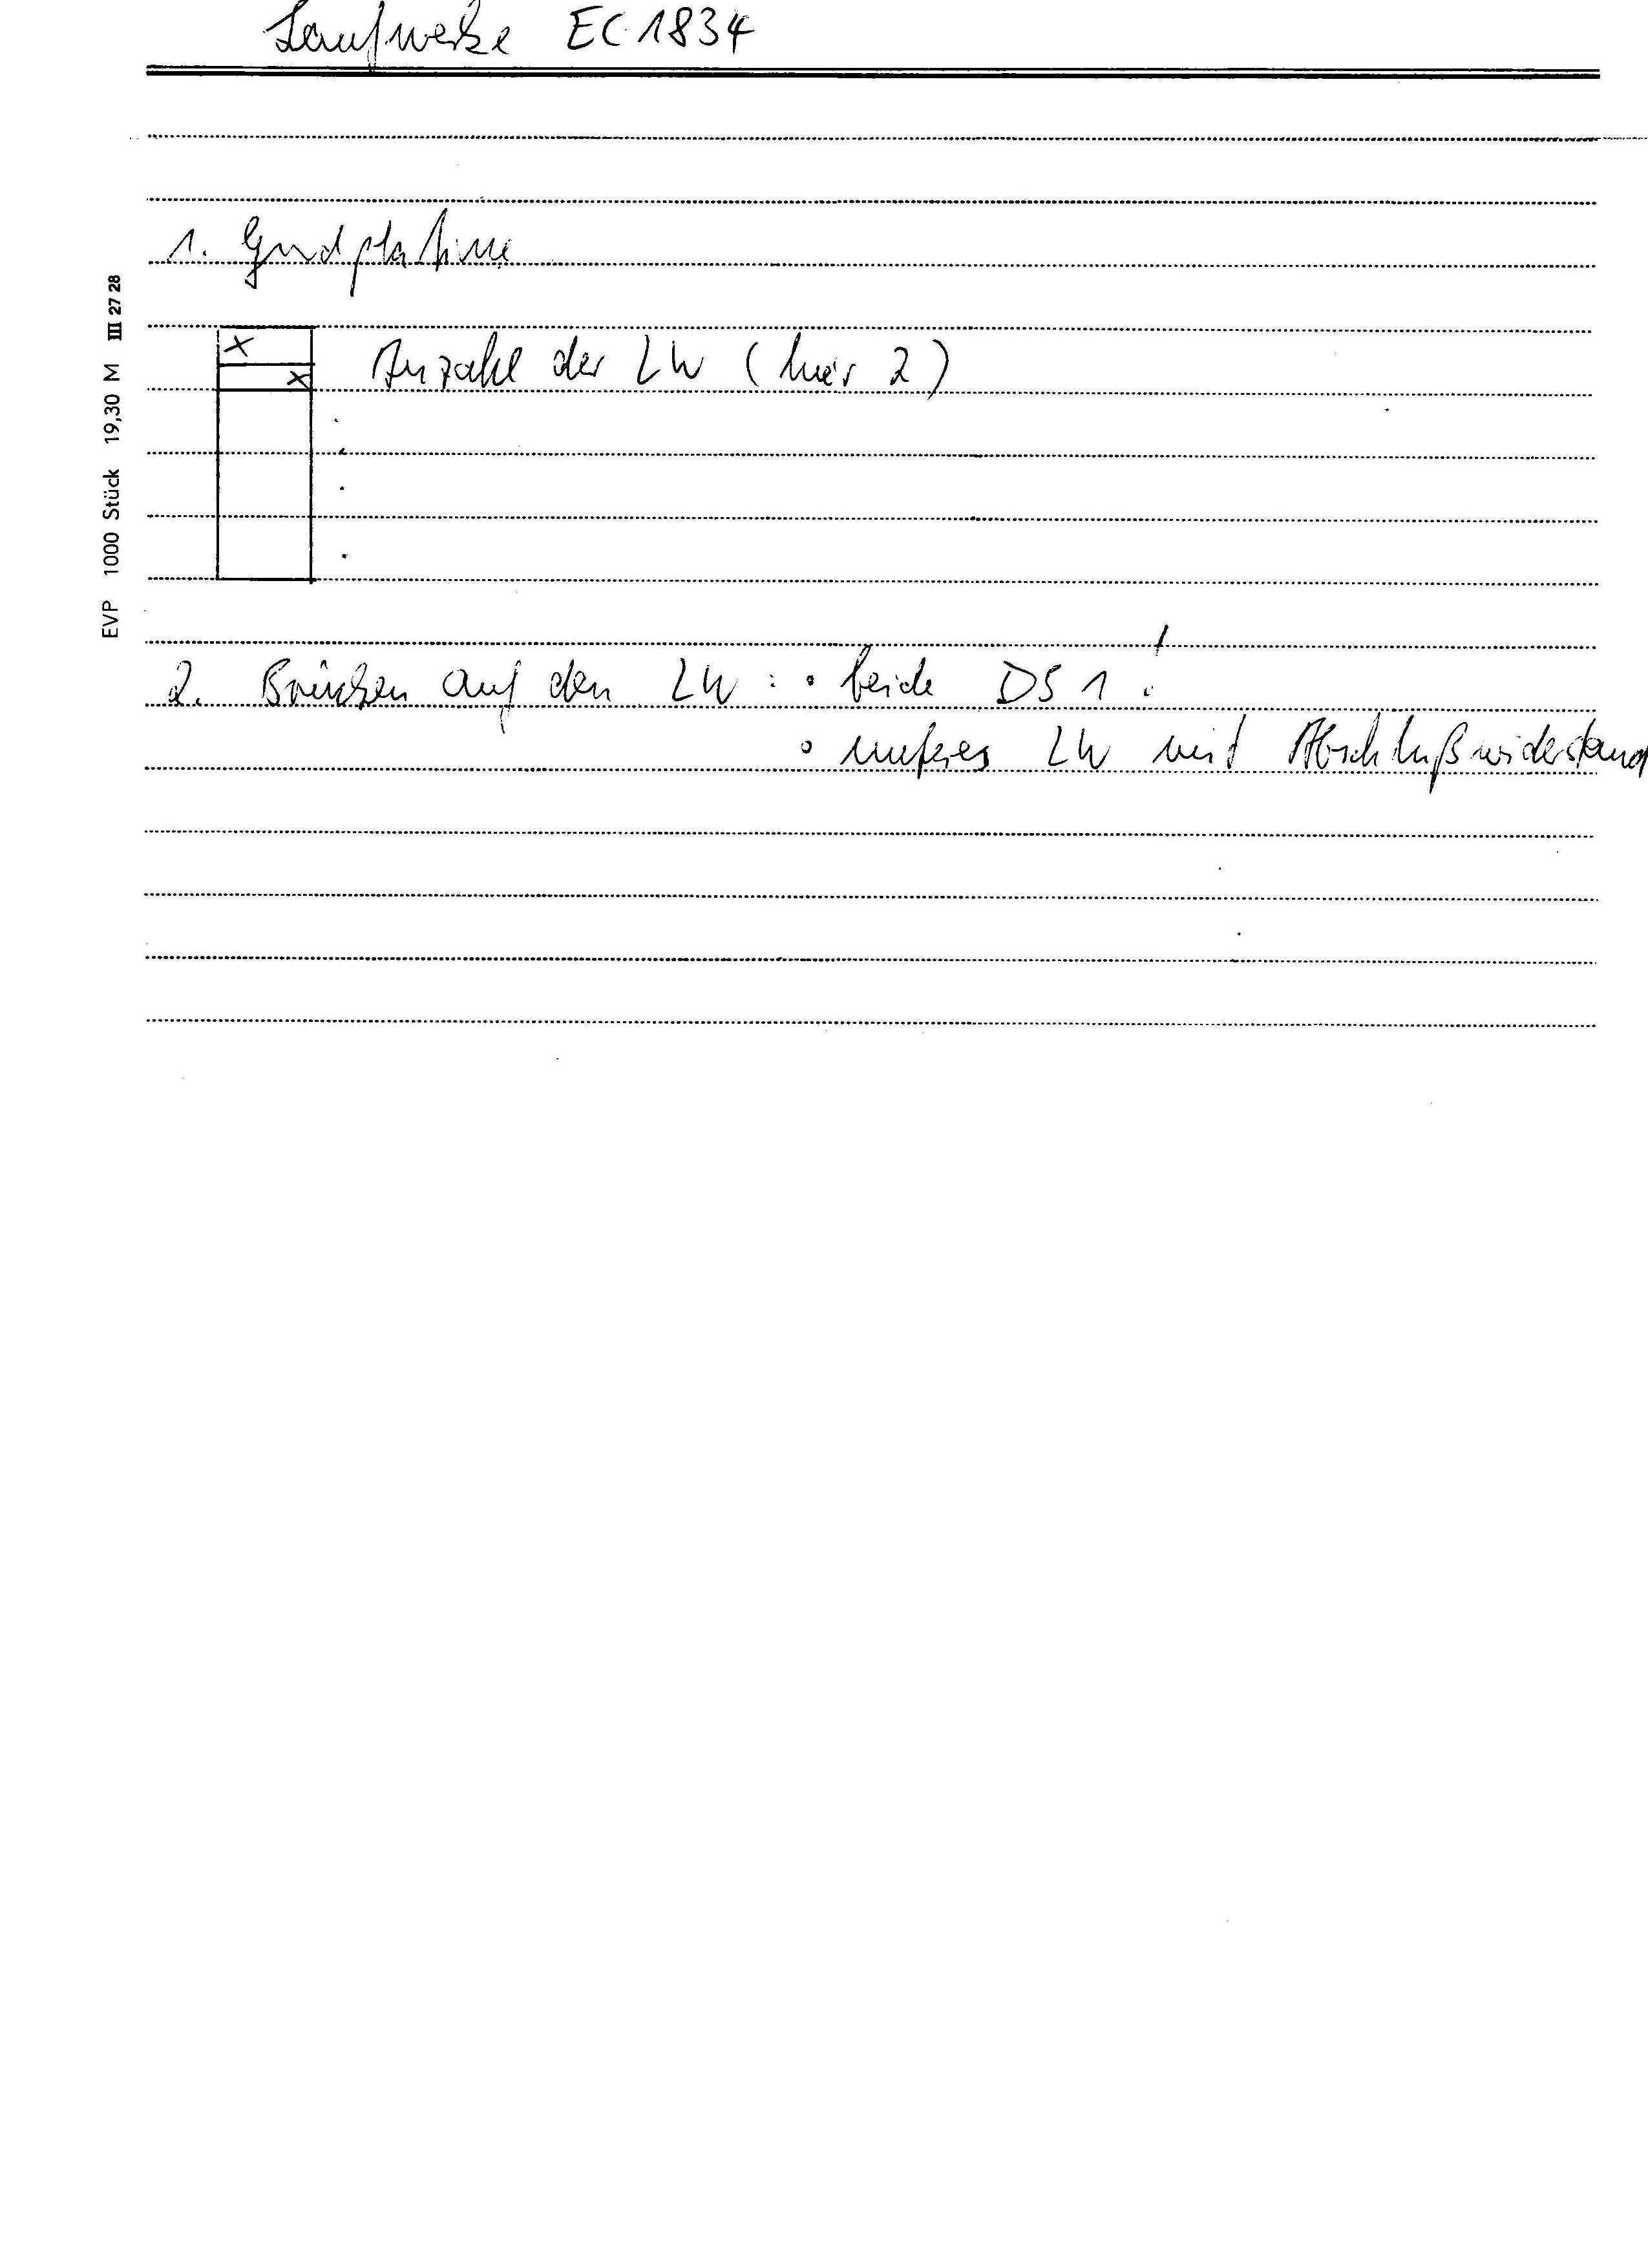 Laufwerke EC 1834
1. Grundplatine
x
Anzahl der LW (hier 2)
x
2. Brücken auf den LW : • beide DS 1 !
• unteres LW mit Abschlußwiderstand
EVP 1000 Stück 19,30 M III 27 28